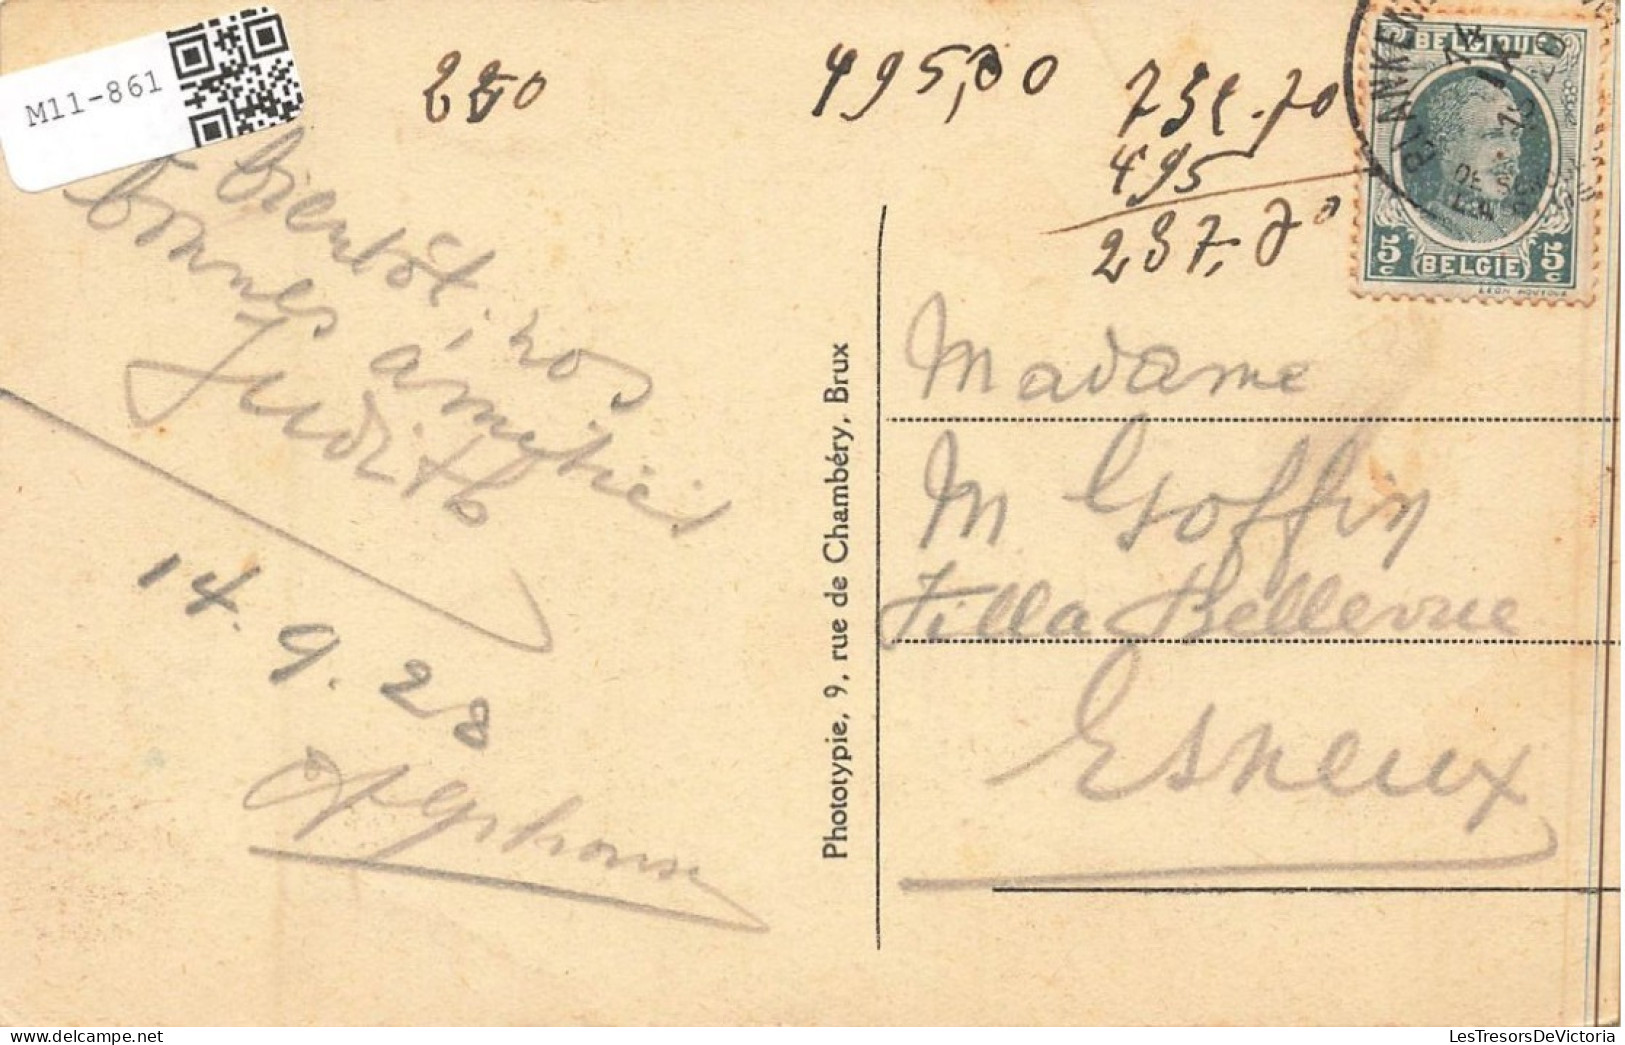 M11-861
495,00
495
237,70
bientôt, nos
bonnes amitiés
Judith
14.9.28
Alphonse
Phototypie, 9, rue de Chambéry, Brux
BELGIQUE
5c BELGIE 5c
Madame
M Goffin
Villa Bellevue
Esneux
LesTresorsDeVictoria